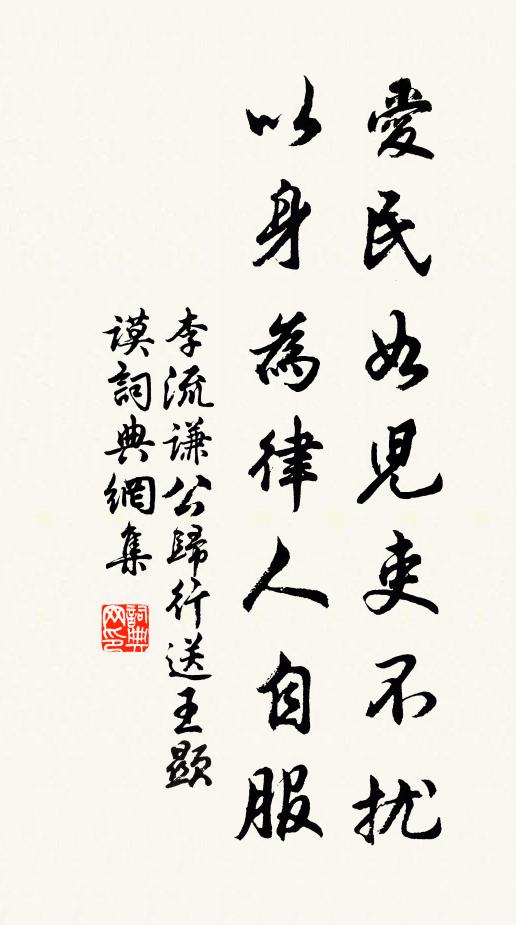 愛民如児吏不扰
以身為律人自服
李流谦公歸行送王顯
谟詞典網集
詞典网印